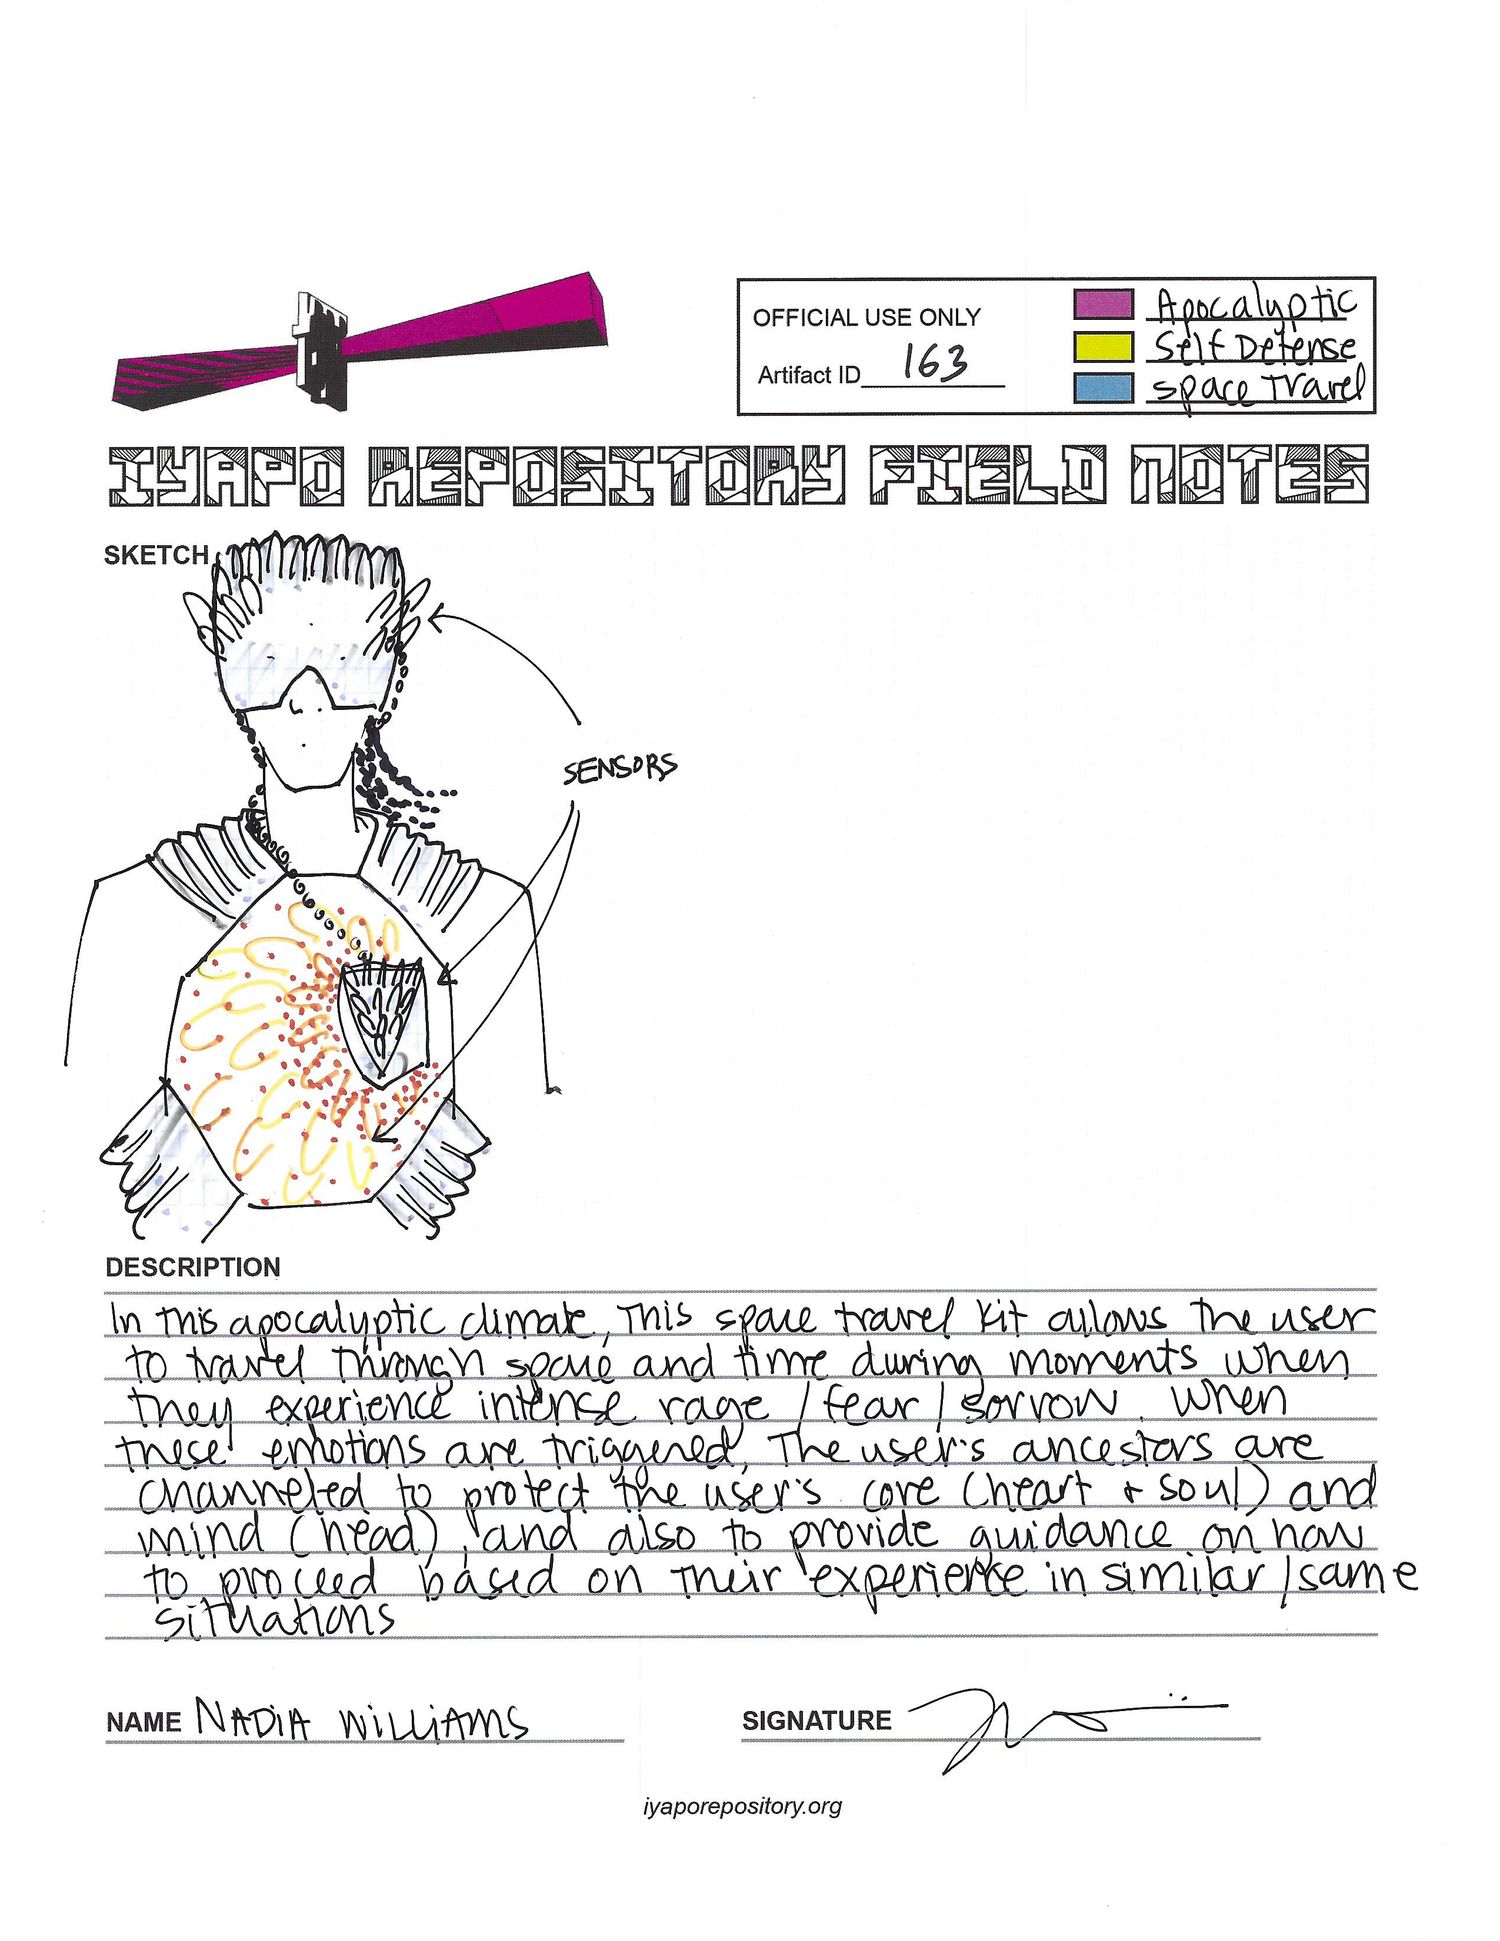 OFFICIAL USE ONLY
Artifact ID 163
Apocalyptic
Self Defense
space Travel
IYAPO REPOSITORY FIELD NOTES
SKETCH
SENSORS
DESCRIPTION
In this apocalyptic climate, This space travel kit allows the user
to travel through space and time during moments when
they experience intense rage / fear / sorrow. When
these emotions are triggered, The user's ancestors are
channeled to protect the user's core (heart + soul) and
mind (head), and also to provide guidance on how
to proceed based on their experience in similar / same
situations
NAME NADIA WILLIAMS
SIGNATURE
iyaporepository.org